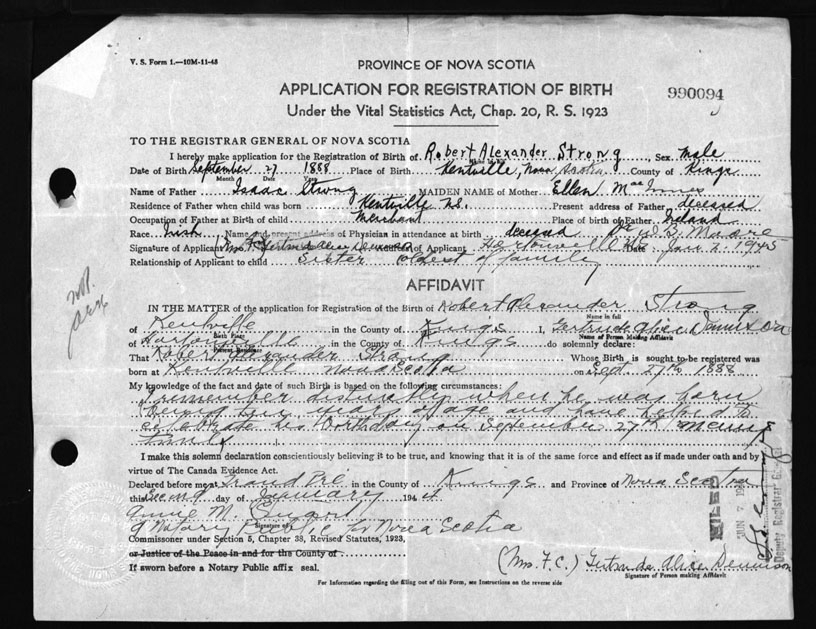 V. S. Form 1.—10M-11-43
PROVINCE OF NOVA SCOTIA
APPLICATION FOR REGISTRATION OF BIRTH
990094
Under the Vital Statistics Act, Chap. 20, R. S. 1923
TO THE REGISTRAR GENERAL OF NOVA SCOTIA
I hereby make application for the Registration of Birth of Robert Alexander Strong Sex male
Date of Birth September 27 1888 Place of Birth Kentville, Nova Scotia County of Kings
Month Date Year
Name of Father Isaac Strong MAIDEN NAME of Mother Ellen MacInnes
Residence of Father when child was born Kentville N.S. Present address of Father deceased
Occupation of Father at Birth of child Merchant Place of birth of Father Ireland
Race Irish Name and present address of Physician in attendance at birth deceased Moore
Signature of Applicant (Mrs. F. C.) Gertrude Alice Dennison of Date Jan 2. 1945
Relationship of Applicant to child Sister oldest of family
AFFIDAVIT
IN THE MATTER of the application for Registration of the Birth of Robert Alexander Strong
Name in full
of Kentville in the County of Kings I, Gertrude Alice Dennison
Birth Place Name of Person Making Affidavit
of in the County of Kings do solemnly declare:
Present Residence
That Robert Alexander Strong Whose Birth is sought to be registered was
born at Kentville Nova Scotia on Sept. 27th 1888
My knowledge of the fact and date of such Birth is based on the following circumstances:
I remember distinctly when he was born
years of age and have helped to
celebrate his birthday on September 27th many
times
I make this solemn declaration conscientiously believing it to be true, and knowing that it is of the same force and effect as if made under oath and by
virtue of The Canada Evidence Act.
Declared before me at Grand Pré County of Kings and Province of Nova Scotia
this Second day of January 194
Annie M.
Signature of
A Notary Public for Nova Scotia
Commissioner under Section 5, Chapter 38, Revised Statutes, 1923,
or Justice of the Peace in and for the County of
If sworn before a Notary Public affix seal.
(Mrs. F. C.) Gertrude Alice Dennison
Signature of Person making Affidavit
For Information regarding the filling out of this Form, see Instructions on the reverse side
FILED
JAN 7
Deputy Registrar General